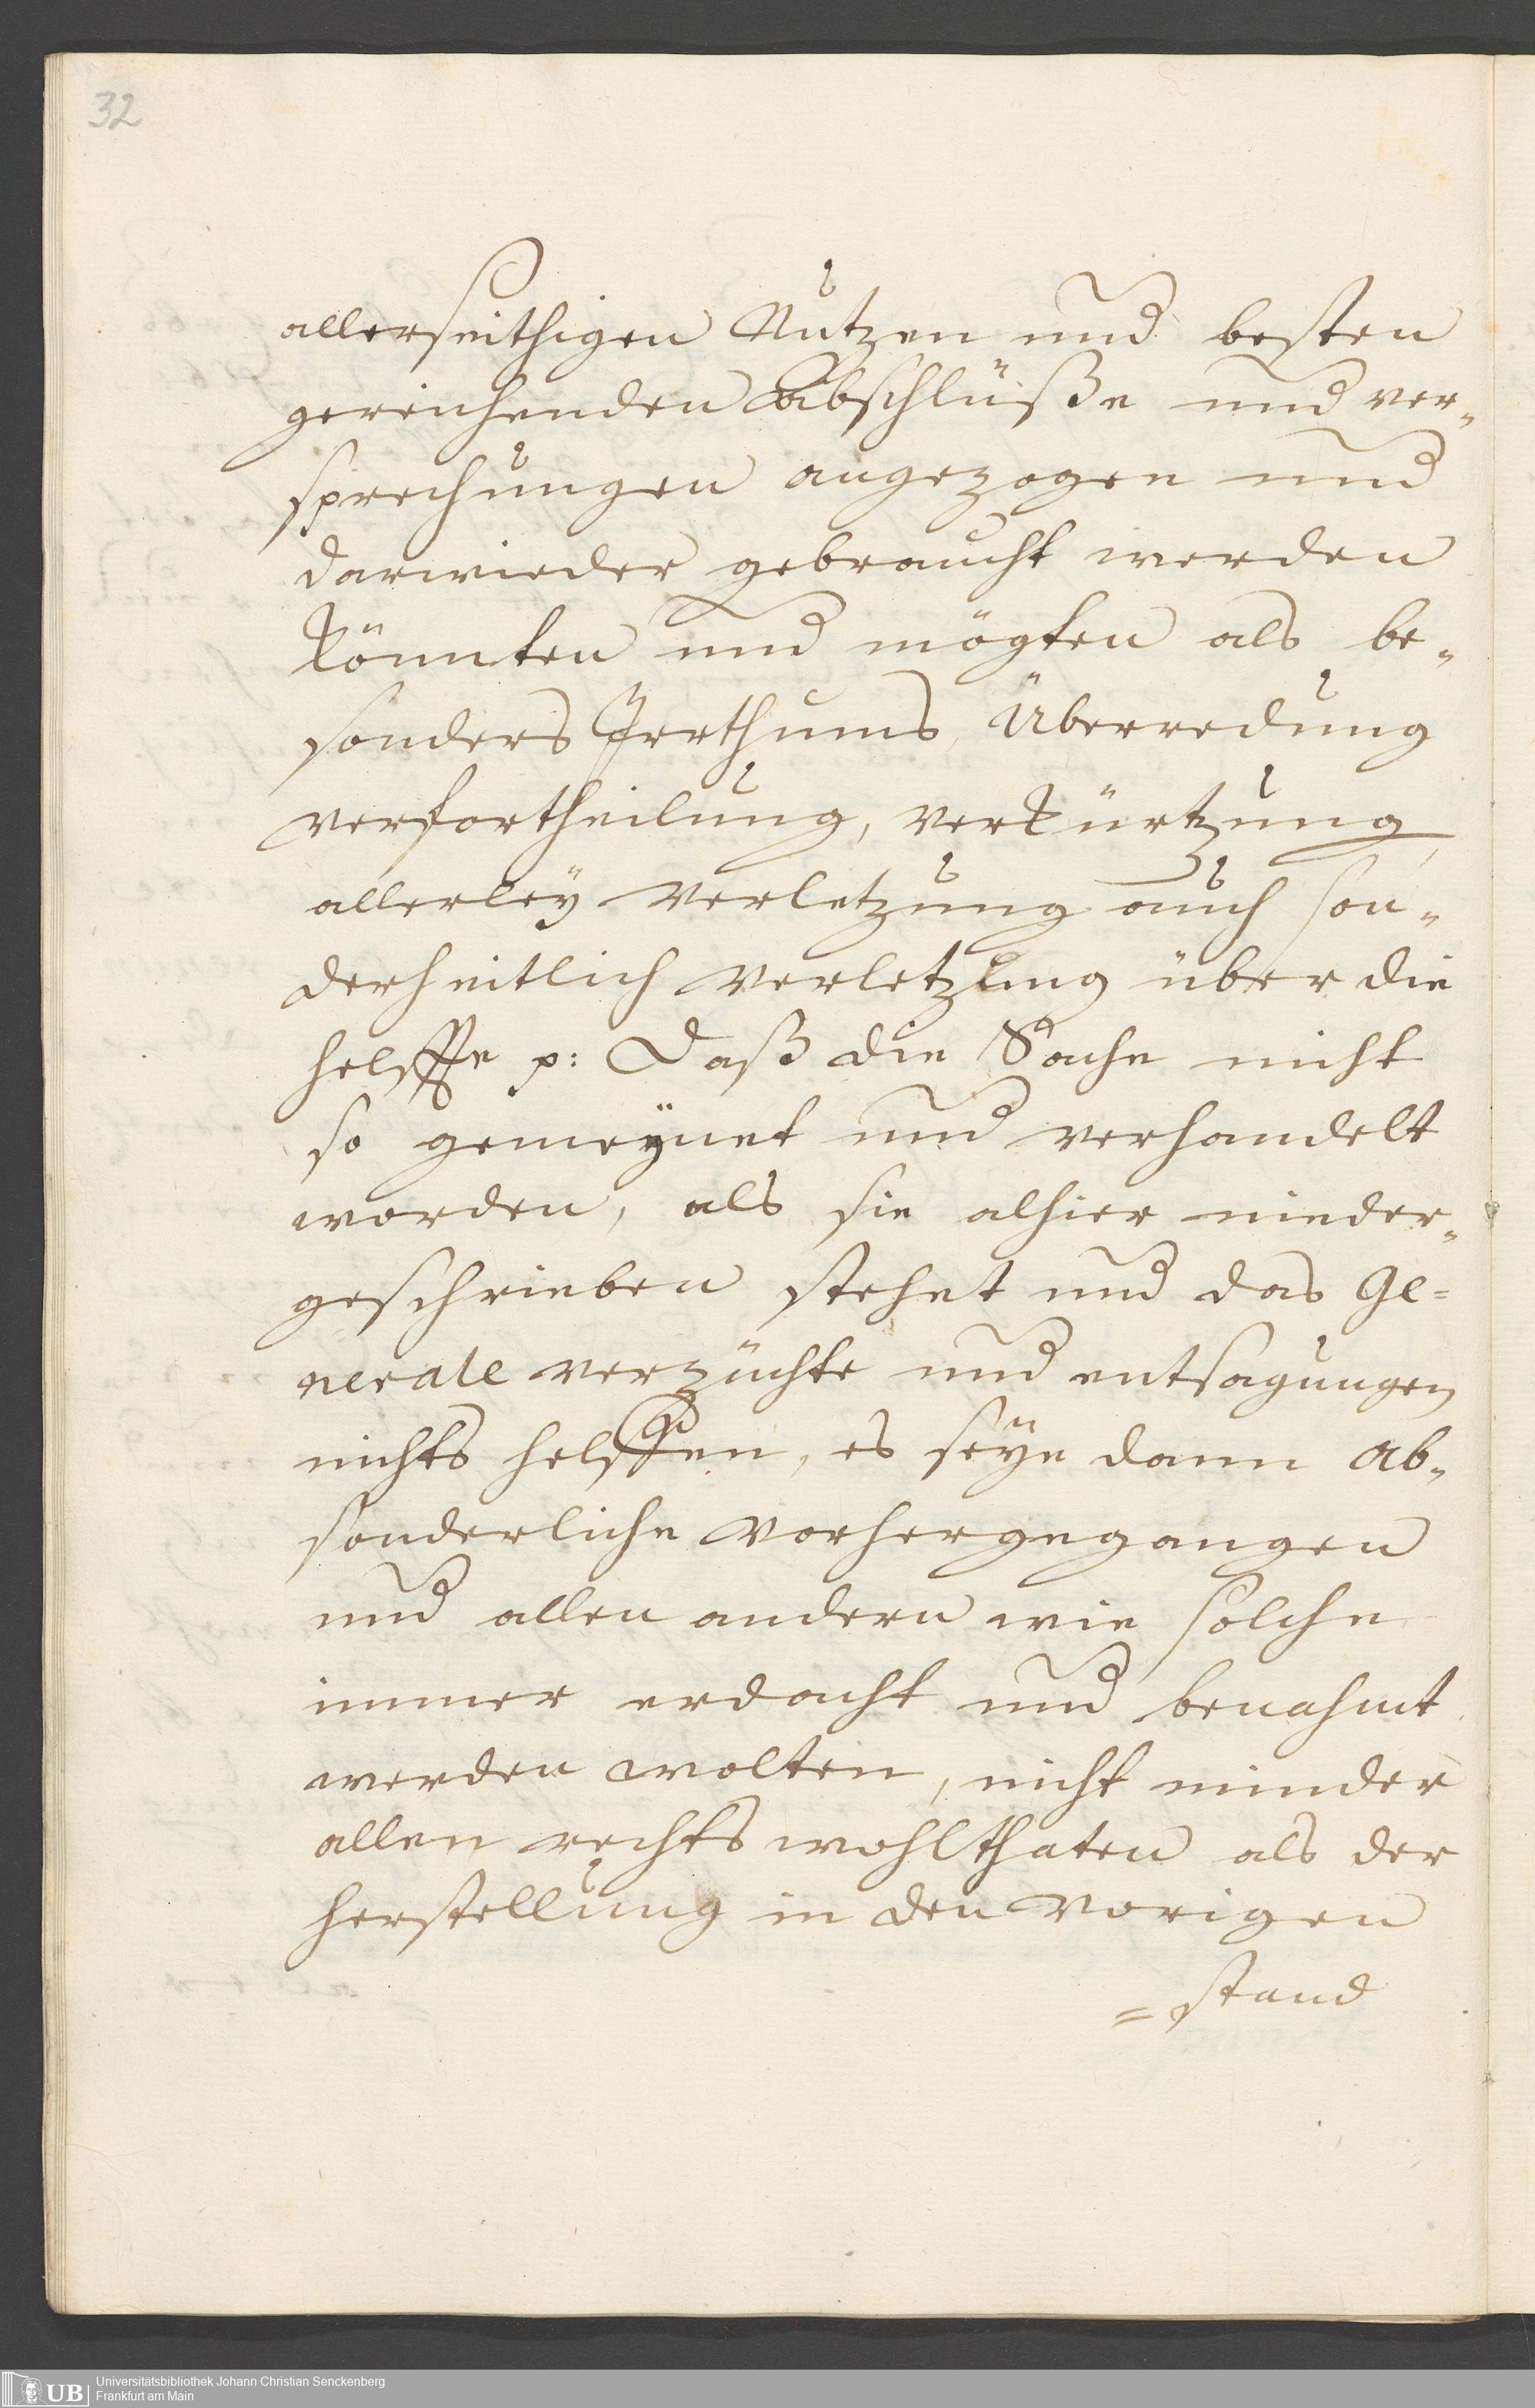 32
allerseithigen Nutzen und besten
gereichenden Abschlüße und ver-
sprechungen angezogen und
darwieder gebraucht werden
könnten und mögten als be-
sonders Irrthums, Überredung
verfortheilung, verkürtzung,
allerley Verletzung auch son-
derheitlich Verletzung über die
helffte p: Daß die Sache nicht
so gemeÿnet und verhandelt
worden, als sie alhier nieder-
geschrieben stehet und das Ge=
nerale verzüchte und entsagungen
nichts helffen, es seÿe dann ab-
sonderliche vorhergegangen
und allen andern wie solche
immer erdacht und benahmt
werden wolten, nicht minder
allen rechts wohlthaten als der
herstellung in den vorigen
=stand
UB
Universitätsbibliothek Johann Christian Senckenberg
Frankfurt am Main